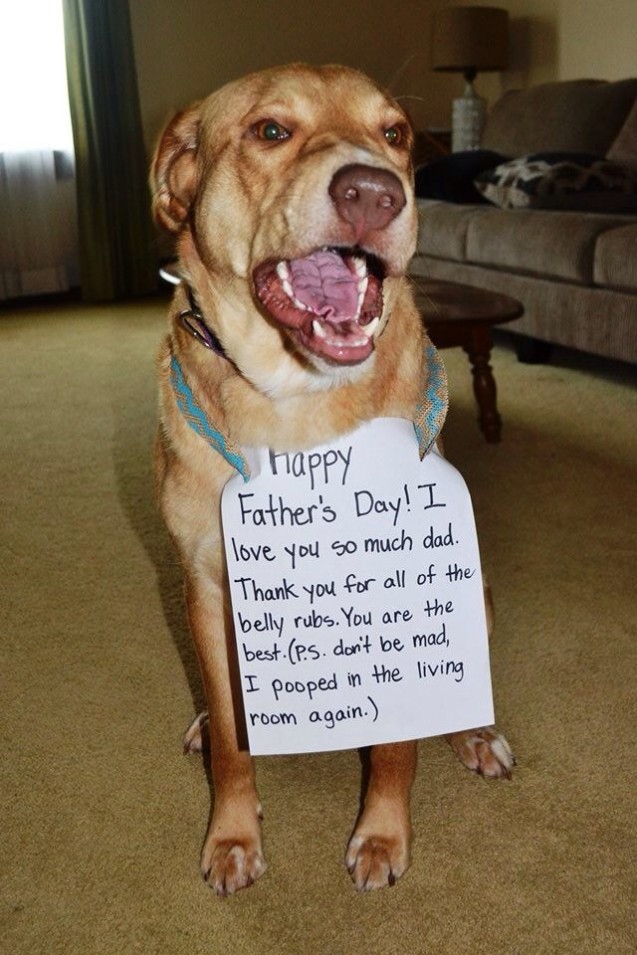 Happy
Father's Day! I
love you so much dad.
Thank you for all of the
belly rubs. You are the
best. (P.S. don't be mad,
I pooped in the living
room again.)